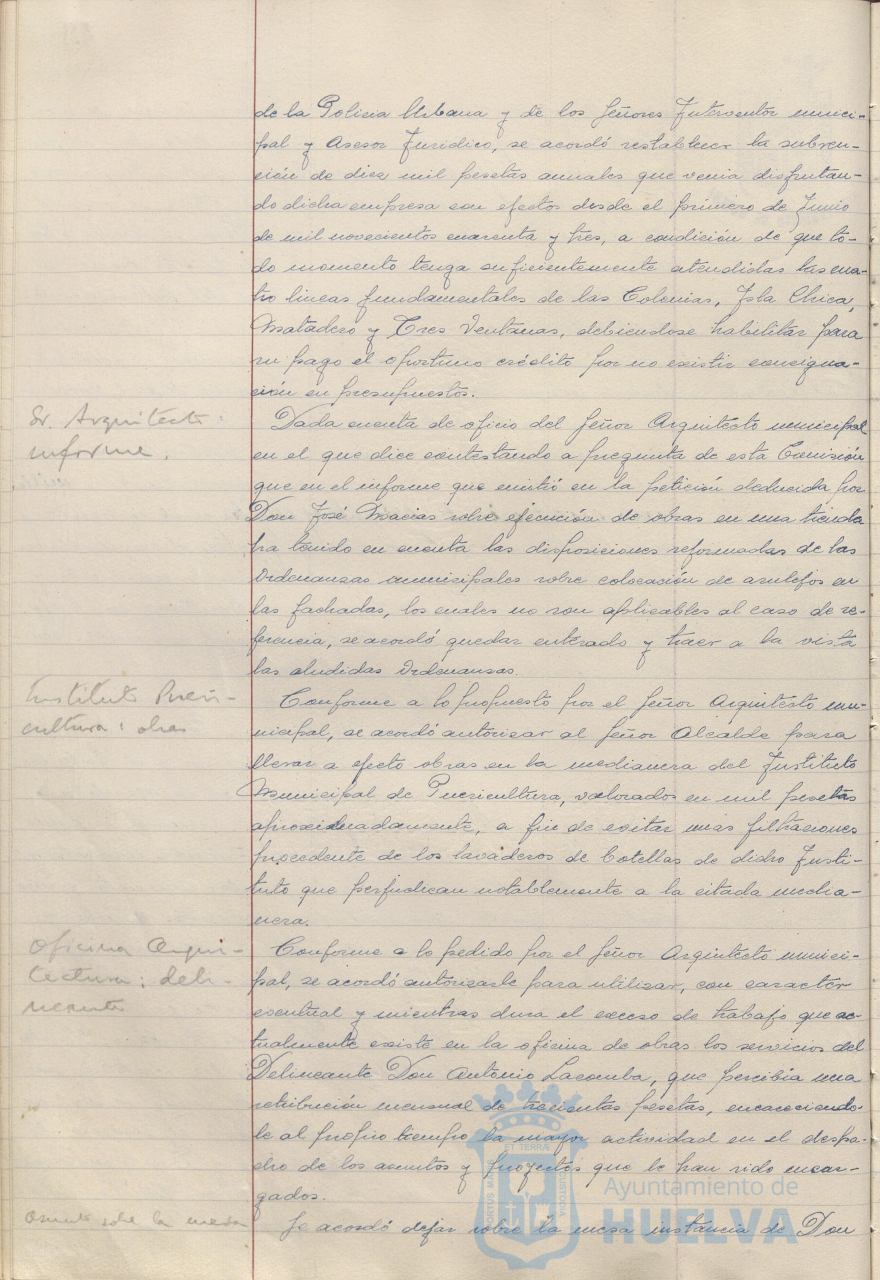 de la Policia Urbana y de los Señores Interventor munici-
pal y Asesor Jurídico, se acordó restablecer la subven-
ción de diez mil pesetas anuales que venia disfrutan-
do dicha empresa con efectos desde el primero de Junio
de mil novecientos cuarenta y tres, a condición de que to-
do momento tenga suficientemente atendidas las cua-
tro lineas fundamentales de las Colonias, Isla Chica,
Matadero y Tres Ventanas, debiendose habilitar para
su pago el oportuno crédito por no existir consigna-
ción en presupuestos.
Sr. Arquitecto:
informe.
Dada cuenta de oficio del Señor Arquitecto municipal
en el que dice contestando a pregunta de esta Comisión
que en el informe que emitió en la petición deducida por
Don José Macias sobre ejecución de obras en una tienda
ha tenido en cuenta las disposiciones reformadas de las
Ordenanzas municipales sobre colocación de azulejos en
las fachadas, los cuales no son aplicables al caso de re-
ferencia, se acordó quedar enterado y traer a la vista
las aludidas Ordenanzas.
Instituto Pueri-
cultura: obras
Conforme a lo propuesto por el Señor Arquitecto mu-
nicipal, se acordó autorizar al Señor Alcalde para
llevar a efecto obras en la medianera del Instituto
Municipal de Puericultura, valorados en mil pesetas
aproximadamente, a fin de evitar mas filtraciones
procedente de los lavaderos de botellas de dicho Insti-
tuto que perjudican notablemente a la citada media-
nera.
Oficina Arqui-
tectura: deli-
neante
Conforme a lo pedido por el Señor Arquitecto munici-
pal, se acordó autorizarle para utilizar, con caracter
eventual y mientras dura el exceso de trabajo que ac-
tualmente existe en la oficina de obras los servicios del
Delineante Don Antonio Lacomba, que percibía una
retribución mensual de trecientas pesetas, encareciendo-
le al propio tiempo la mayor actividad en el despa-
cho de los asuntos y proyectos que le han sido encar-
gados.
Asunto sobre la mesa
Se acordó dejar sobre la mesa instancia de Don
ET TERRÆ
PORTUS MARIS
CUSTODIA
Ayuntamiento de
HUELVA